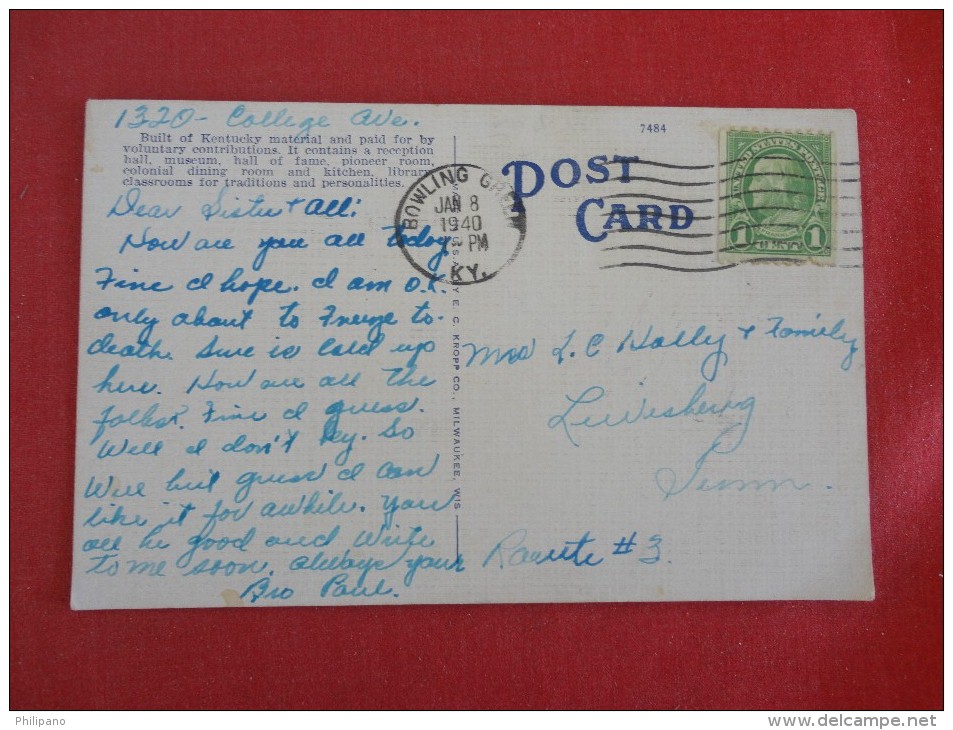 1320 - College Ave.
Built of Kentucky material and paid for by
voluntary contributions. It contains a reception
hall, museum, hall of fame, pioneer room,
colonial dining room and kitchen, library
classrooms for traditions and personalities.
Dear Sister & All:
How are you all today.
Fine I hope. I am O.K.
only about to Freeze to.
death. Sure is Cold up
here. How are all the
folks. Fine I guess.
Well I don't So
Well but guess I can
like it for awhile. You
all be good and Write
to me soon. Always your
Bro Paul.
7484
POST
CARD
BOWLING GREEN
JAN 8
1940
PM
KY.
UNITED STATES POSTAGE
1 1
E. C. KROPP CO., MILWAUKEE, WIS
Mrs L. C Holly & Family
Lewisburg
Tenn.
Route #3.
Philipano
www.delcampe.net